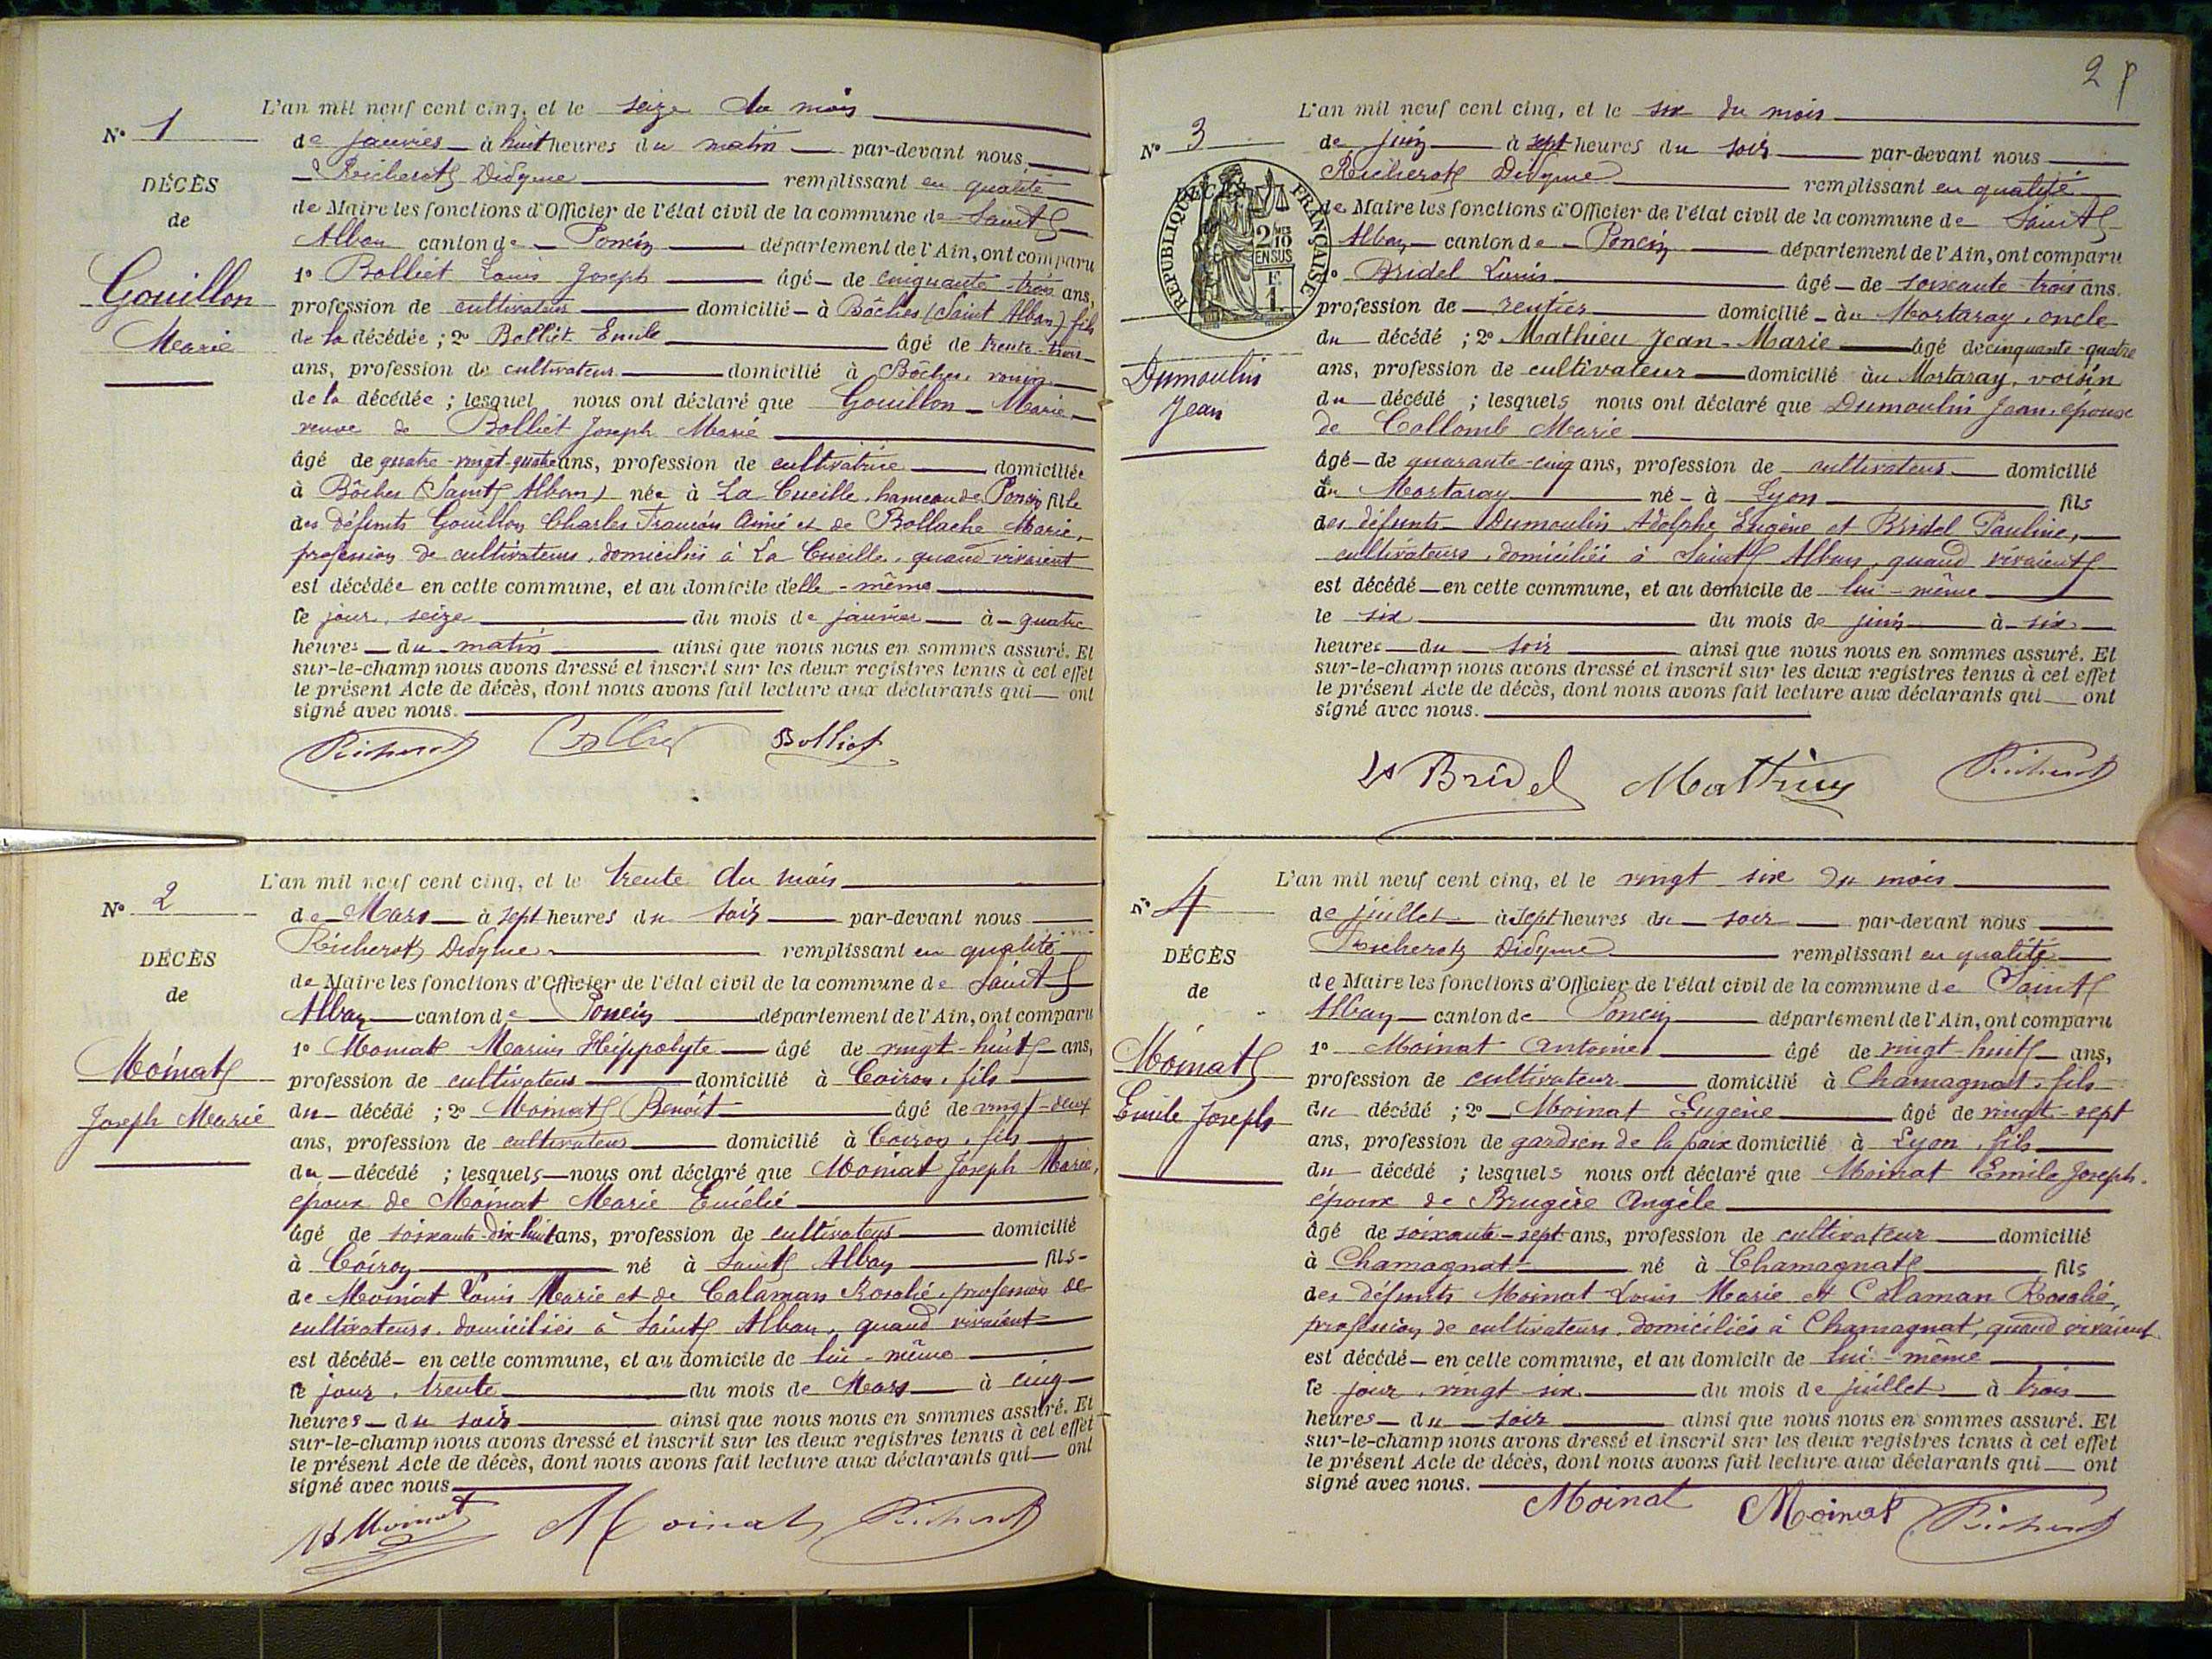 L'an mil neuf cent cinq, et le seize du mois
N° 1
de janvier à huit heures du matin par-devant nous
Richerot Didyme remplissant en qualité
DÉCÈS
de Maire les fonctions d'Officier de l'état civil de la commune de Saint
de
Alban canton de Poncin département de l'Ain, ont comparu
1° Bolliet Louis Joseph âgé de cinquante-trois ans,
Gouillon
profession de cultivateur domicilié à Bôches (Saint Alban) fils
Marie
de la décédée ; 2° Bolliet Emile âgé de trente-trois
ans, profession de cultivateur domicilié à Bôches, voisin
de la décédée ; lesquel nous ont déclaré que Gouillon Marie
veuve de Bolliet Joseph Marie
âgé de quatre-vingt-quatre ans, profession de cultivatrice domiciliée
à Bôches (Saint Alban) née à La Cueille, hameau de Poncin fille
des défunts Gouillon Charles François Aimé et de Bollache Marie,
profession de cultivateurs, domiciliés à La Cueille, quand vivaient
est décédée en cette commune, et au domicile d'elle-même
le jour, seize du mois de janvier à quatre
heures du matin ainsi que nous nous en sommes assuré. Et
sur-le-champ nous avons dressé et inscrit sur les deux registres tenus à cet effet
le présent Acte de décès, dont nous avons fait lecture aux déclarants qui ont
signé avec nous.
Richerot Bolliet Bolliet
L'an mil neuf cent cinq, et le trente du mois
N° 2
de Mars à sept heures du soir par-devant nous
Richerot Didyme remplissant en qualité
DÉCÈS
de Maire les fonctions d'Officier de l'état civil de la commune de Saint
de
Alban canton de Poncin département de l'Ain, ont comparu
1° Moinat Marius Hippolyte âgé de vingt-huit ans,
Moinat
profession de cultivateur domicilié à Coiron, fils
Joseph Marie
du décédé ; 2° Moinat Benoît âgé de vingt-deux
ans, profession de cultivateur domicilié à Coiron, fils
du décédé ; lesquels nous ont déclaré que Moinat Joseph Marie,
époux de Moinat Marie Emélie
âgé de soixante-dix-huit ans, profession de cultivateur domicilié
à Coiron né à Saint Alban fils
de Moinat Louis Marie et de Calaman Rosalie, profession de
cultivateurs, domiciliés à Saint Alban, quand vivaient
est décédé en cette commune, et au domicile de lui-même
le jour, trente du mois de Mars à cinq
heures du soir ainsi que nous nous en sommes assuré. Et
sur-le-champ nous avons dressé et inscrit sur les deux registres tenus à cet effet
le présent Acte de décès, dont nous avons fait lecture aux déclarants qui ont
signé avec nous
Moinat Moinat Richerot
2
L'an mil neuf cent cinq, et le six du mois
N° 3
de juin à sept heures du soir par-devant nous
Richerot Didyme remplissant en qualité
DÉCÈS
RÉPUBLIQUE FRANÇAISE
2/10 EN SUS
F. 1.
de Maire les fonctions d'Officier de l'état civil de la commune de Saint
Alban canton de Poncin département de l'Ain, ont comparu
1° Bridel Louis âgé de soixante-trois ans.
profession de rentier domicilié au Mortaray, oncle
du décédé ; 2° Mathieu Jean-Marie âgé de cinquante-quatre
Dumoulin
ans, profession de cultivateur domicilié au Mortaray, voisin
Jean
du décédé ; lesquels nous ont déclaré que Dumoulin Jean, époux
de Collomb Marie
âgé de quarante-cinq ans, profession de cultivateur domicilié
au Mortaray né à Lyon fils
des défunts Dumoulin Adolphe Eugène et Bridel Pauline,
cultivateurs, domiciliés à Saint Alban, quand vivaient
est décédé en cette commune, et au domicile de lui-même
le six du mois de juin à six
heures du soir ainsi que nous nous en sommes assuré. Et
sur-le-champ nous avons dressé et inscrit sur les deux registres tenus à cet effet
le présent Acte de décès, dont nous avons fait lecture aux déclarants qui ont
signé avec nous.
Ls Bridel Mathieu Richerot
L'an mil neuf cent cinq, et le vingt six du mois
N° 4
de juillet à sept heures du soir par-devant nous
Richerot Didyme remplissant en qualité
DÉCÈS
de Maire les fonctions d'Officier de l'état civil de la commune de Saint
de
Alban canton de Poncin département de l'Ain, ont comparu
1° Moinat Antoine âgé de vingt-huit ans,
Moinat
profession de cultivateur domicilié à Chamagnat, fils
Emile Joseph
du décédé ; 2° Moinat Eugène âgé de vingt-sept
ans, profession de gardien de la paix domicilié à Lyon, fils
du décédé ; lesquels nous ont déclaré que Moinat Emile Joseph.
époux de Brugère Angèle
âgé de soixante-sept ans, profession de cultivateur domicilié
à Chamagnat né à Chamagnat fils
des défunts Moinat Louis Marie et Calaman Rosalie,
profession de cultivateurs, domiciliés à Chamagnat, quand vivaient
est décédé en cette commune, et au domicile de lui-même
le jour, vingt six du mois de juillet à trois
heures du soir ainsi que nous nous en sommes assuré. Et
sur-le-champ nous avons dressé et inscrit sur les deux registres tenus à cet effet
le présent Acte de décès, dont nous avons fait lecture aux déclarants qui ont
signé avec nous.
Moinat Moinat Richerot